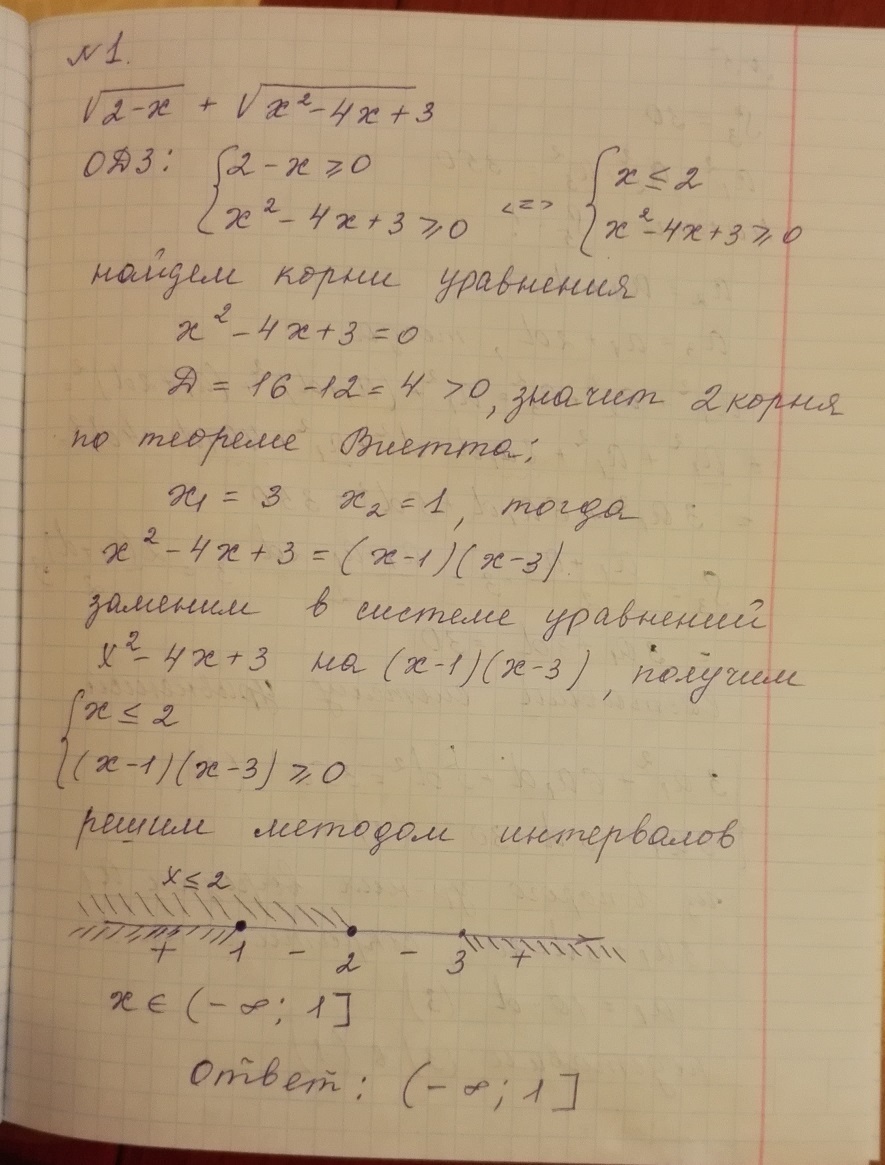 №1.
√2-x + √x²-4x+3
ОДЗ: {2-x ⩾0 <=> {x ≤ 2
{x²-4x+3 ⩾0 {x²-4x+3 ⩾0
найдем корни уравнения
x²-4x+3=0
Д = 16-12=4 >0, значит 2 корня
по теореме Виетта:
x₁ = 3 x₂ =1, тогда
x²-4x+3=(x-1)(x-3)
заменим в системе уравнений
x²-4x+3 на (x-1)(x-3), получим
{x ≤ 2
{(x-1)(x-3) ⩾0
решим методом интервалов
x≤2
+ 1 - 2 - 3 +
x ∈ (-∞; 1]
Ответ: (-∞; 1]